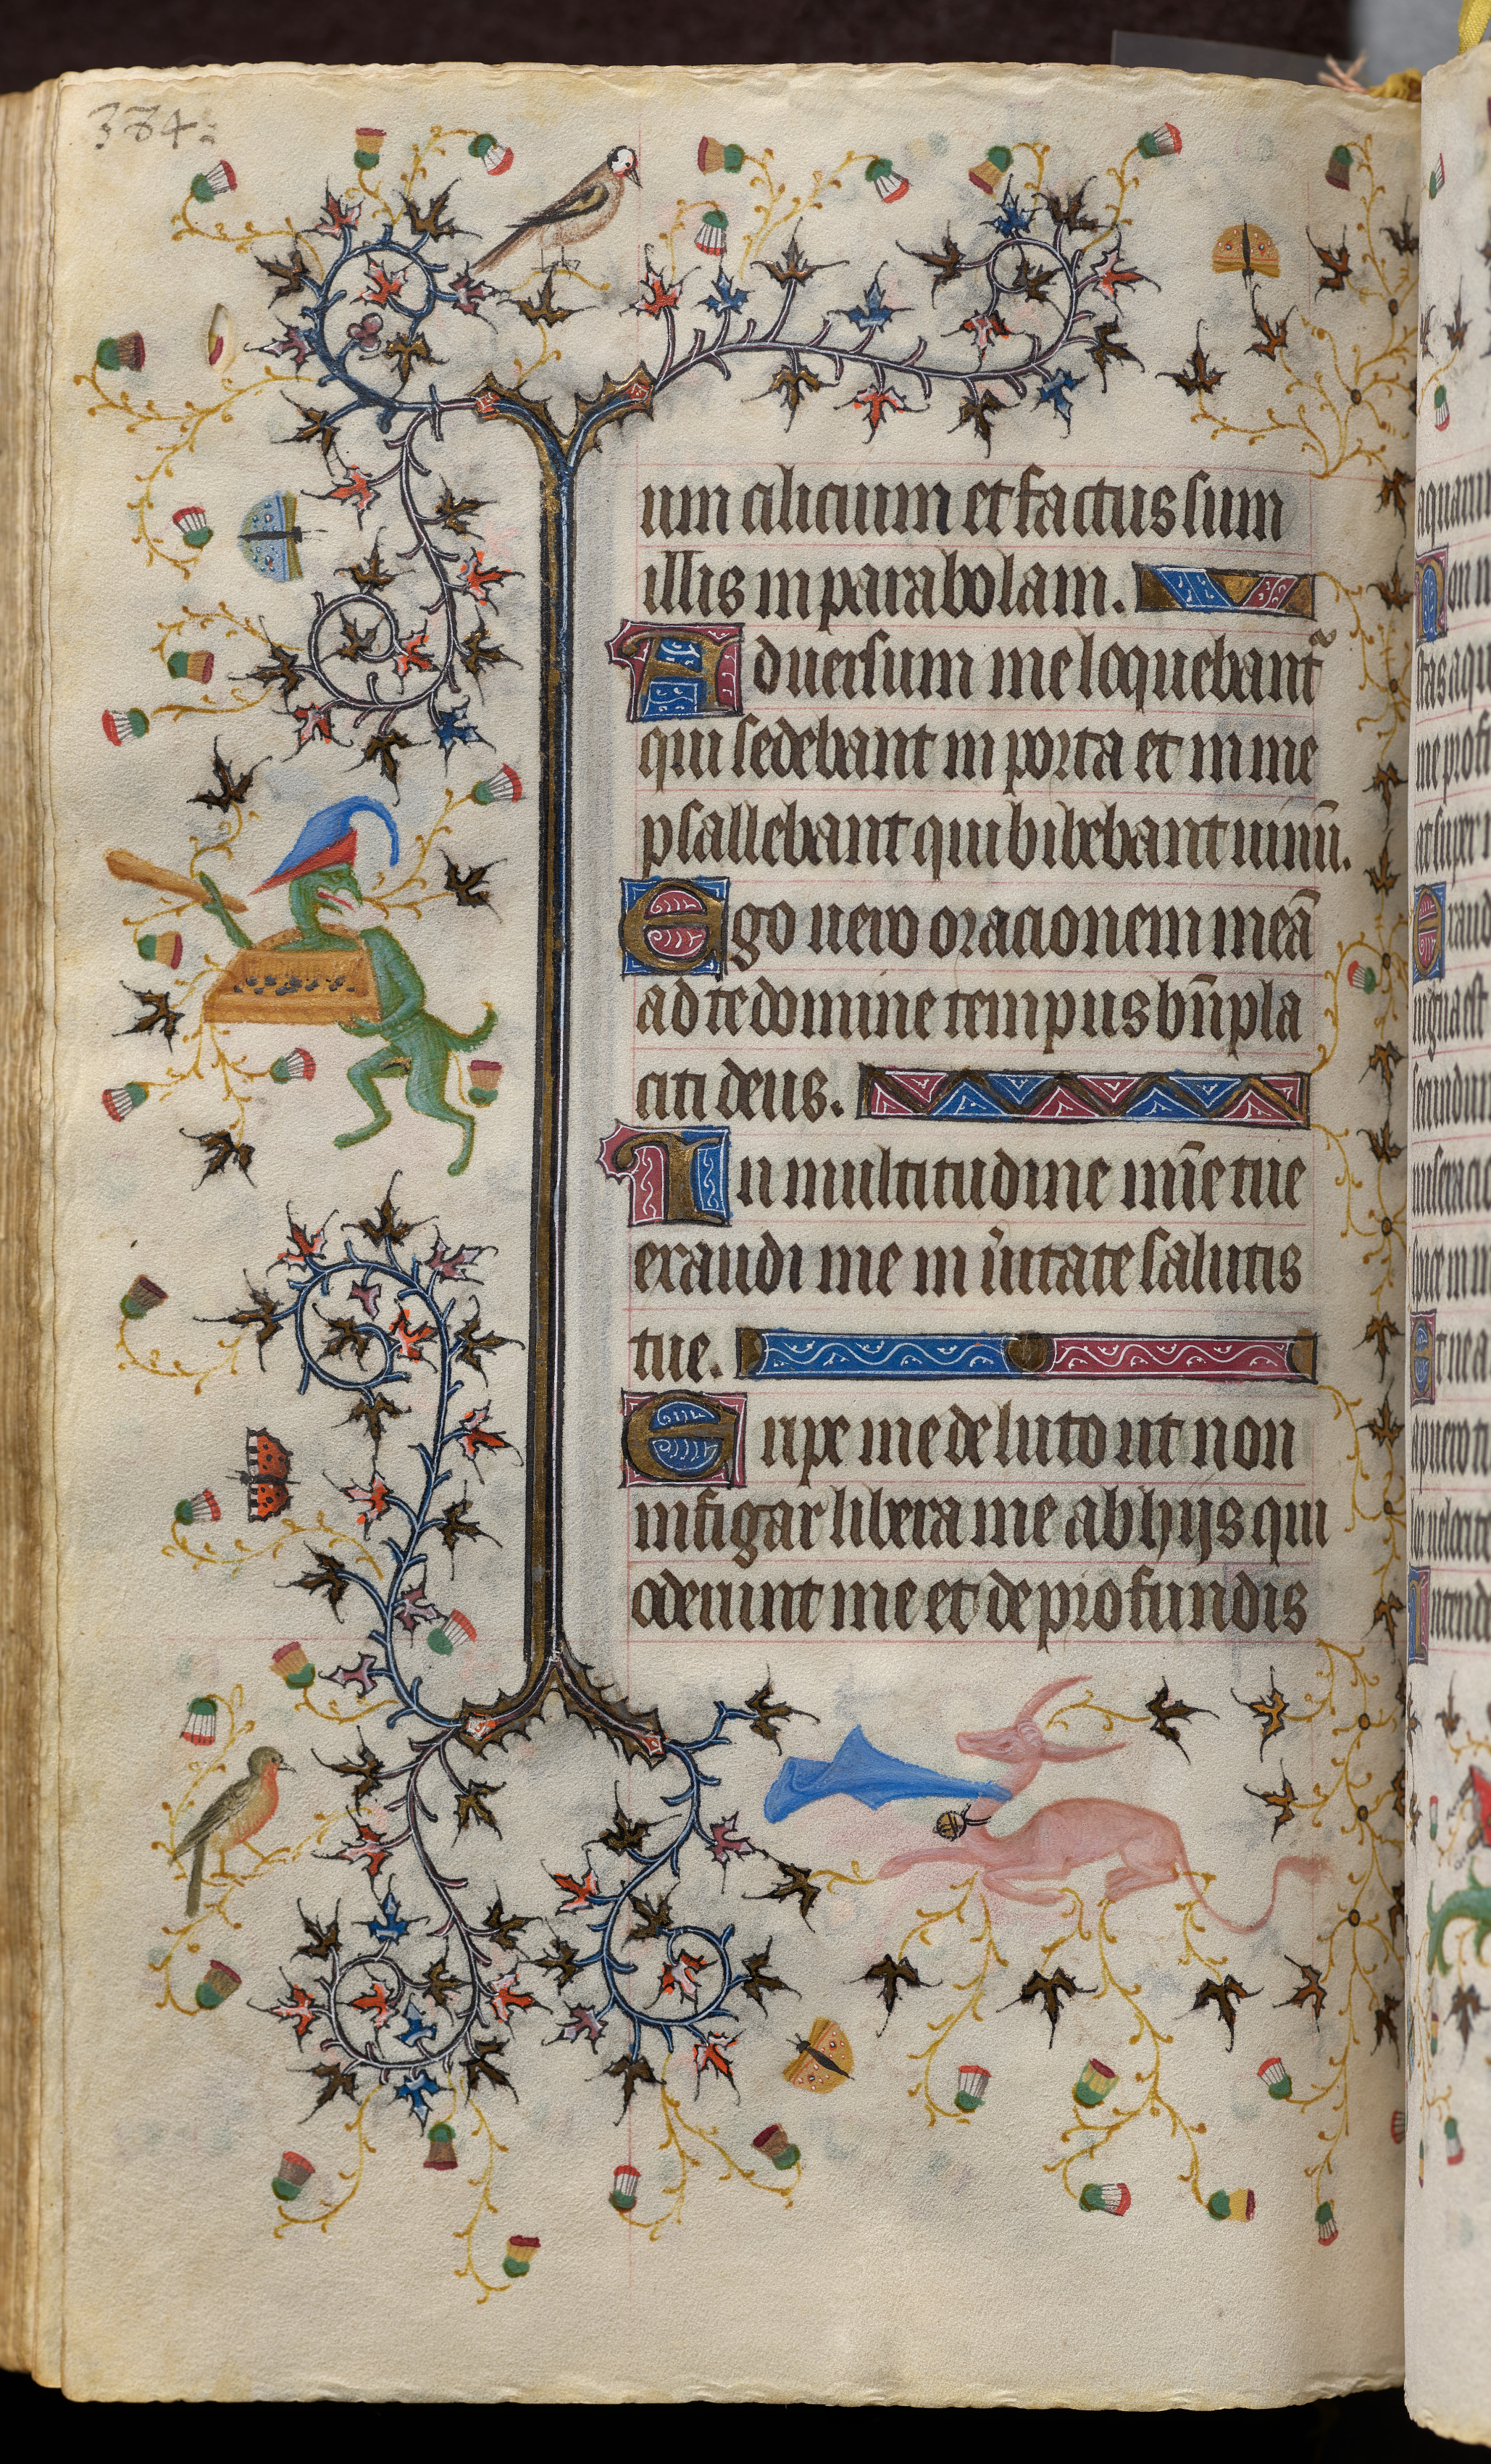 384:
um cilicium et factus sum
illis in parabolam.
Aduersum me loquebant᷑
qui sedebant in porta et in me
psallebant qui bibebant uinū.
Ego uero oracionem meā
ad te domine tempus bn̄pla
citi deus.
In multitudine mīe tue
exaudi me in ūitate salutis
tue.
Eripe me de luto ut non
infigar libera me ab hijs qui
oderunt me et de profundis